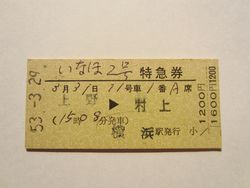 いなほ2号 特急券
3月31日 11号車 1番A席
上野▶村上
(15時08分発車)
横浜駅発行 小
1200円
1600円
53-3.29